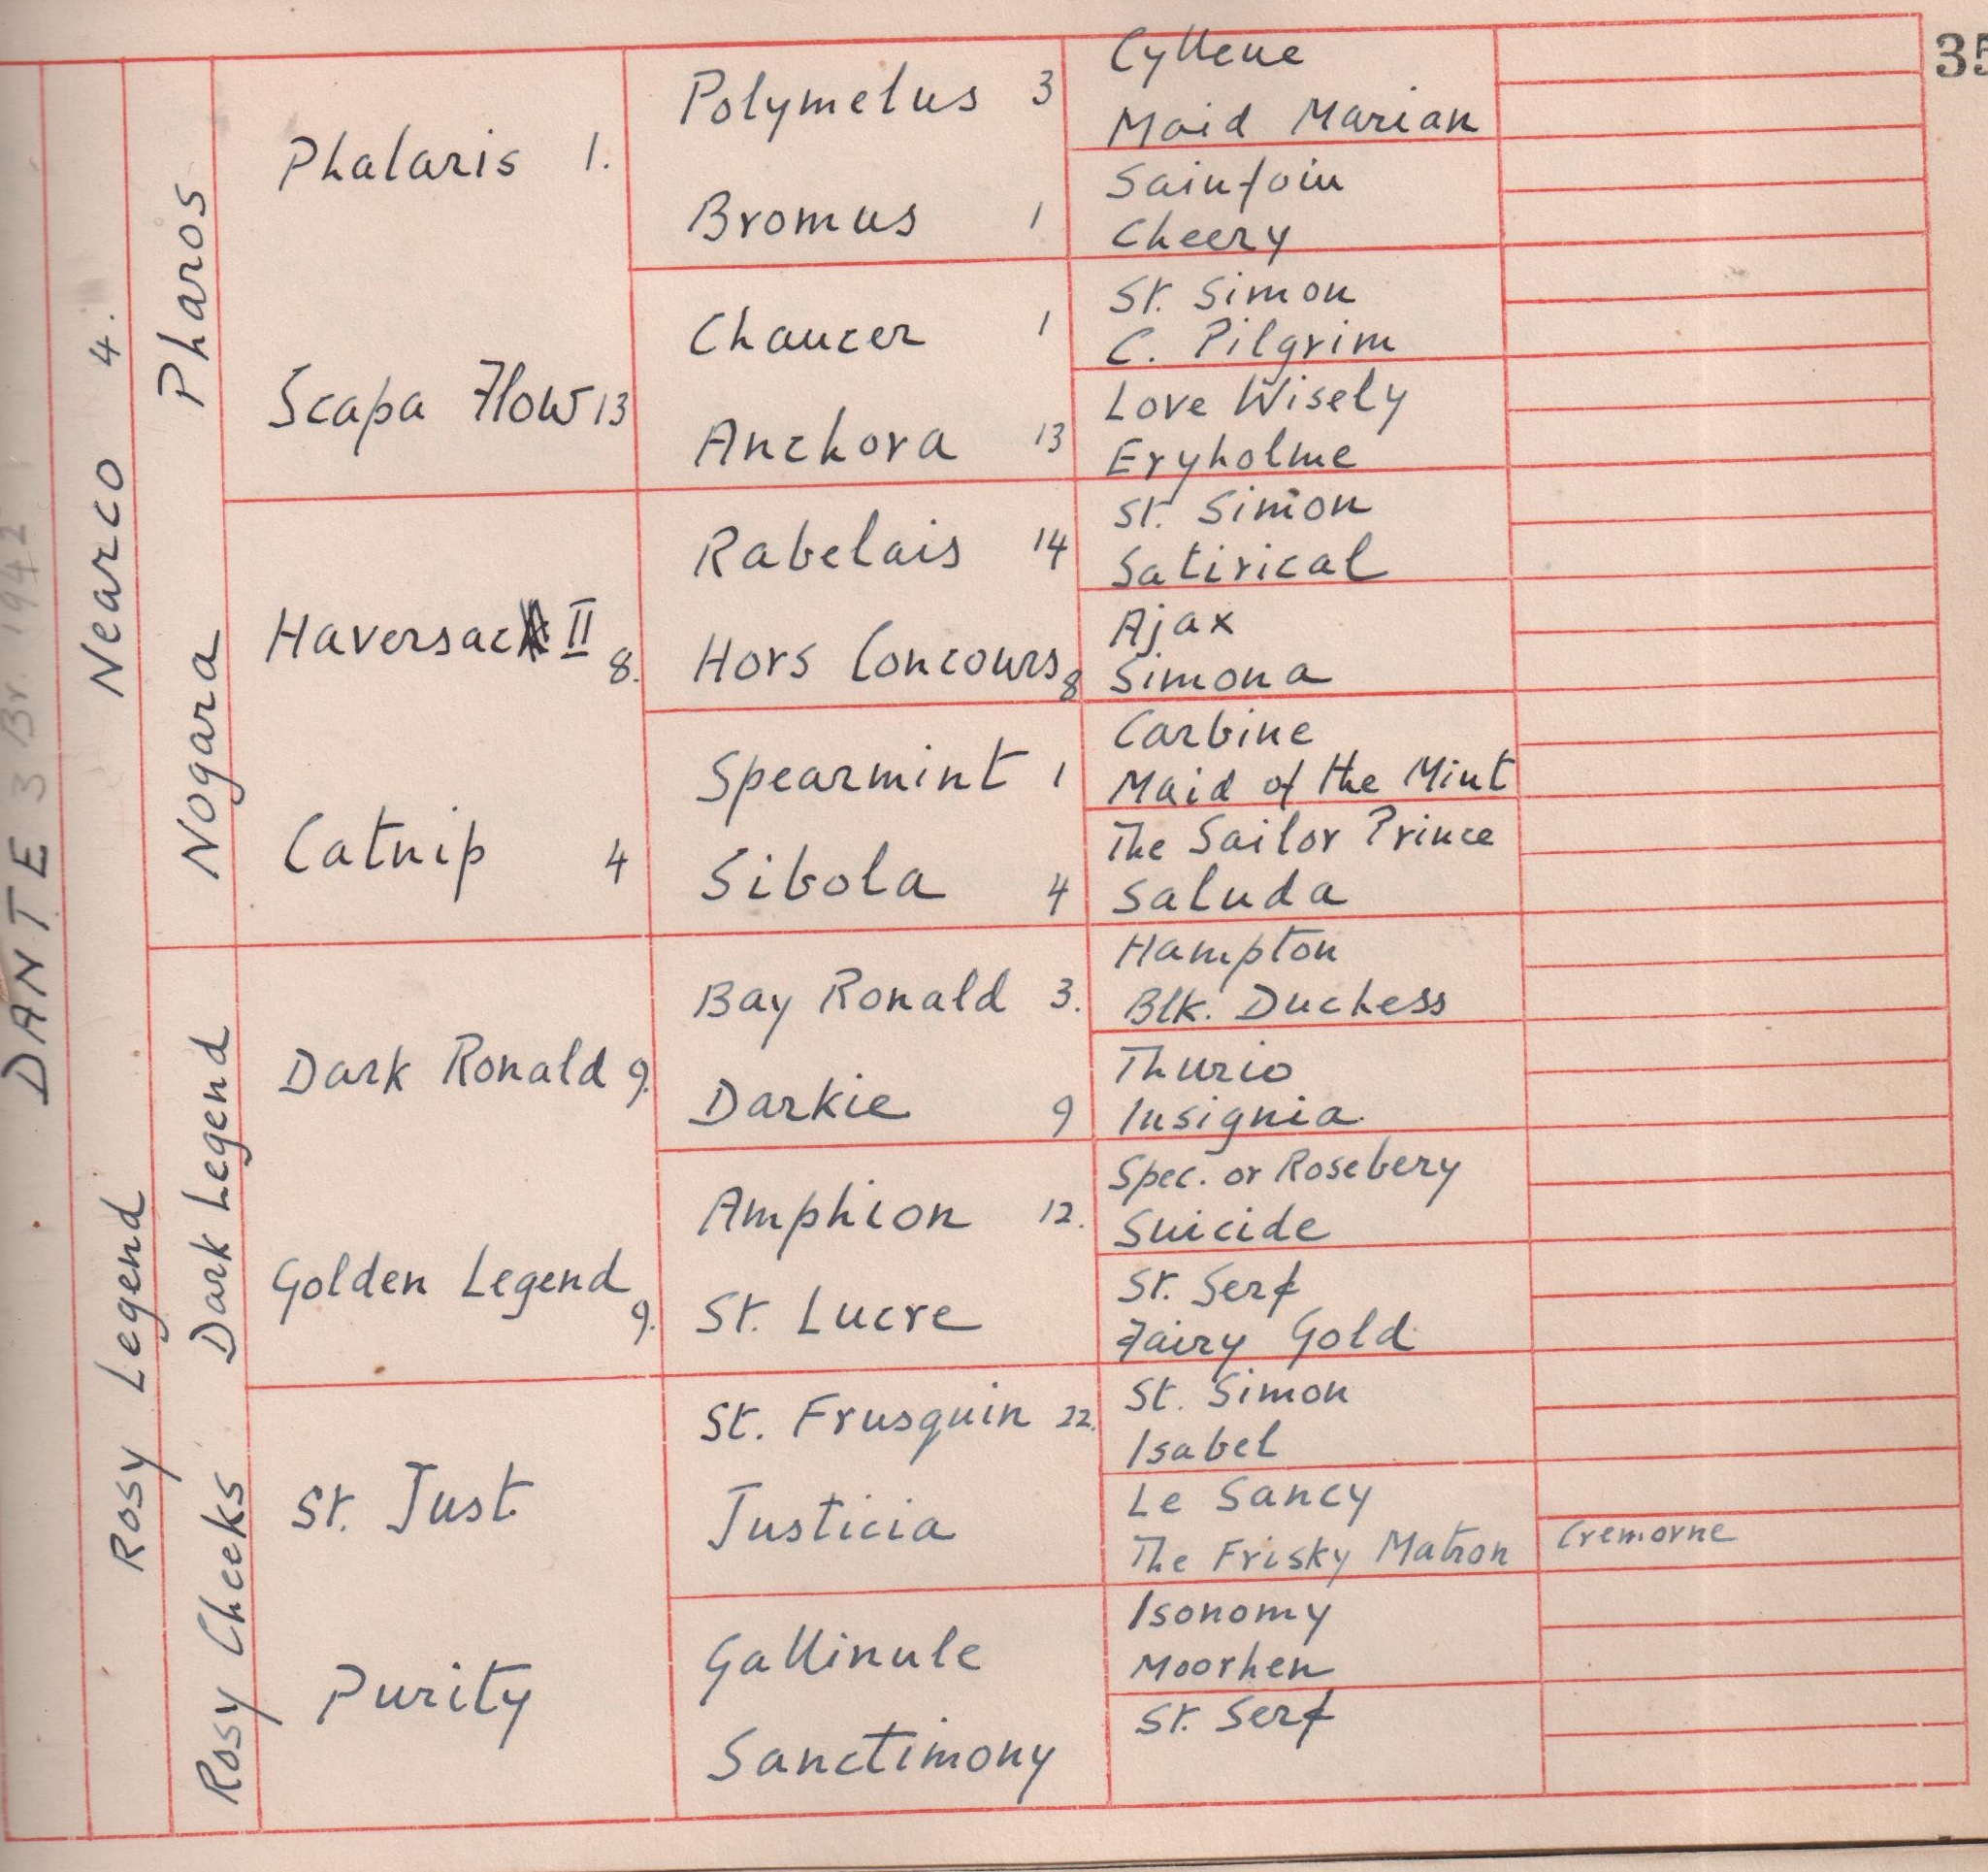 35
DANTE 3 Br. 1942
Nearco 4.
Rosy Legend
Pharos
Nogara
Dark Legend
Rosy Cheeks
Phalaris 1.
Scapa Flow 13
Haversack II 8.
Catnip 4
Dark Ronald 9.
Golden Legend 9.
St. Just.
Purity
Polymelus 3
Bromus 1
Chaucer 1
Anchora 13
Rabelais 14
Hors Concours 8
Spearmint 1
Sibola 4
Bay Ronald 3.
Darkie 9
Amphion 12.
St. Lucre
St. Frusquin 22.
Justicia
Gallinule
Sanctimony
Cyllene
Maid Marian
Sainfoin
Cheery
St. Simon
C. Pilgrim
Love Wisely
Eryholme
St. Simon
Satirical
Ajax
Simona
Carbine
Maid of the Mint
The Sailor Prince
Saluda
Hampton
Blk. Duchess
Thurio
Insignia
Spec. or Rosebery
Suicide
St. Serf
Fairy Gold
St. Simon
Isabel
Le Sancy
The Frisky Matron
Isonomy
Moorhen
St. Serf
Cremorne